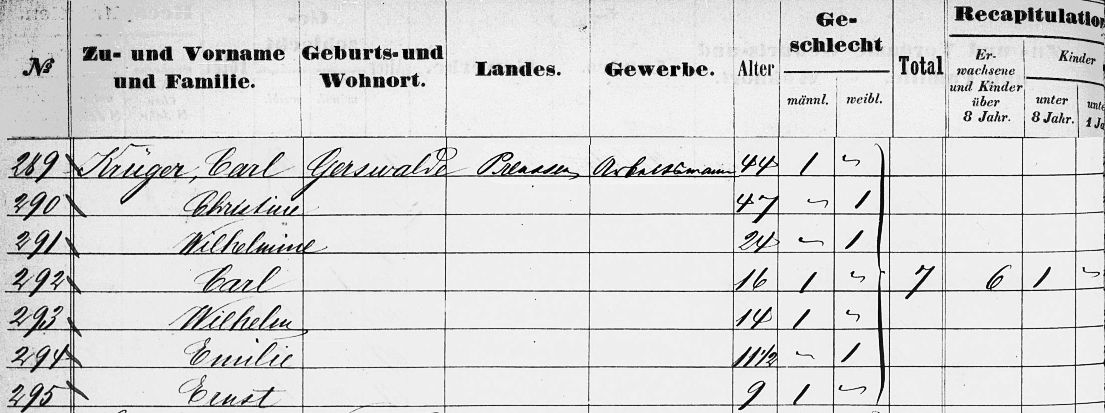 № Zu- und Vorname und Familie. Geburts- und Wohnort. Landes. Gewerbe. Alter Ge-schlecht männl. weibl. Total Recapitulation Er-wachsene und Kinder über 8 Jahr. Kinder unter 8 Jahr. unte 1 Ja
289 Krüger, Carl Gerswalde Preussen Arbeitsmann 44 1 "
290 Christine 47 " 1
291 Wilhelmine 24 " 1
292 Carl 16 1 " 7 6 1 "
293 Wilhelm 14 1 "
294 Emilie 11 1/2 " 1
295 Ernst 9 1 "